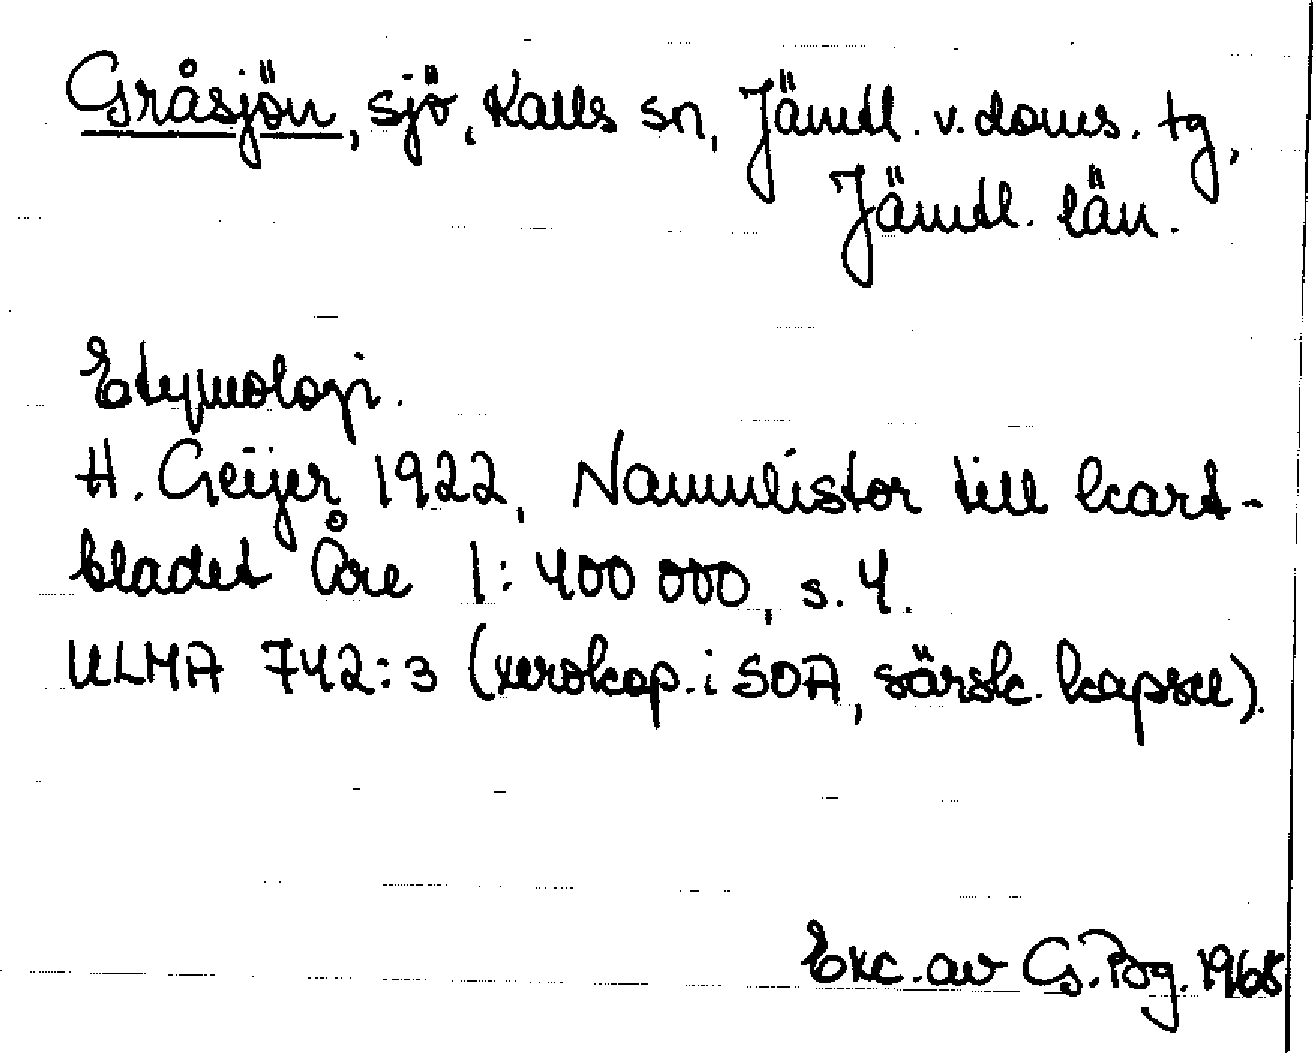 Gråsjön, sjö, Kalls sn, Jämtl. v. doms. tg,
Jämtl. län.
Etymologi.
H. Geijer 1922, Namnlistor till kart-
bladet Åre 1:400 000, s. 4.
ULMA 742:3 (xerokop. i SOA, särsk. kapsel).
Exc. av G. Bg. 1968